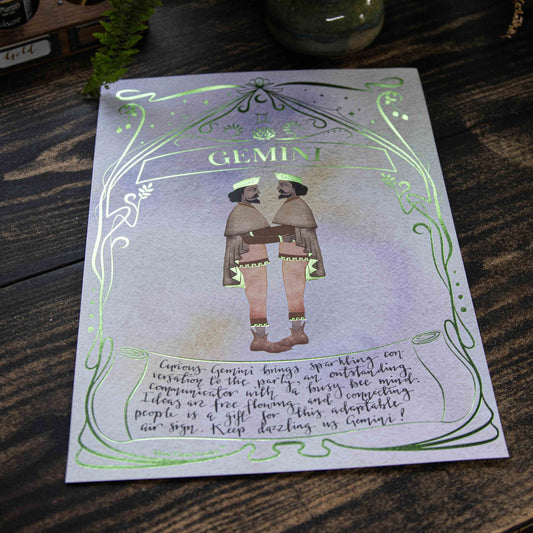 Gold
GEMINI
Curious Gemini brings sparkling con-
versation to the party, an outstanding
communicator with a busy bee mind.
Ideas are free flowing and connecting
people is a gift for this adaptable
air sign. Keep dazzling us Gemini!